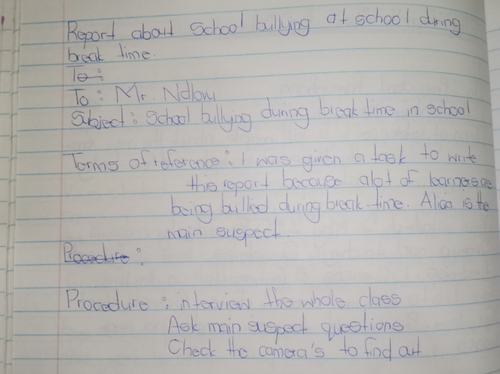 Report about school bullying at school during
break time.
To:
To: Mr. Ndlovu
Subject: School bullying during break time in school
Terms of reference: I was given a task to write
this report because alot of learners are
being bullied during break time. Alicia is the
main suspect.
Procedure:
Procedure: interview the whole class
Ask main suspect questions
Check the camera's to find out